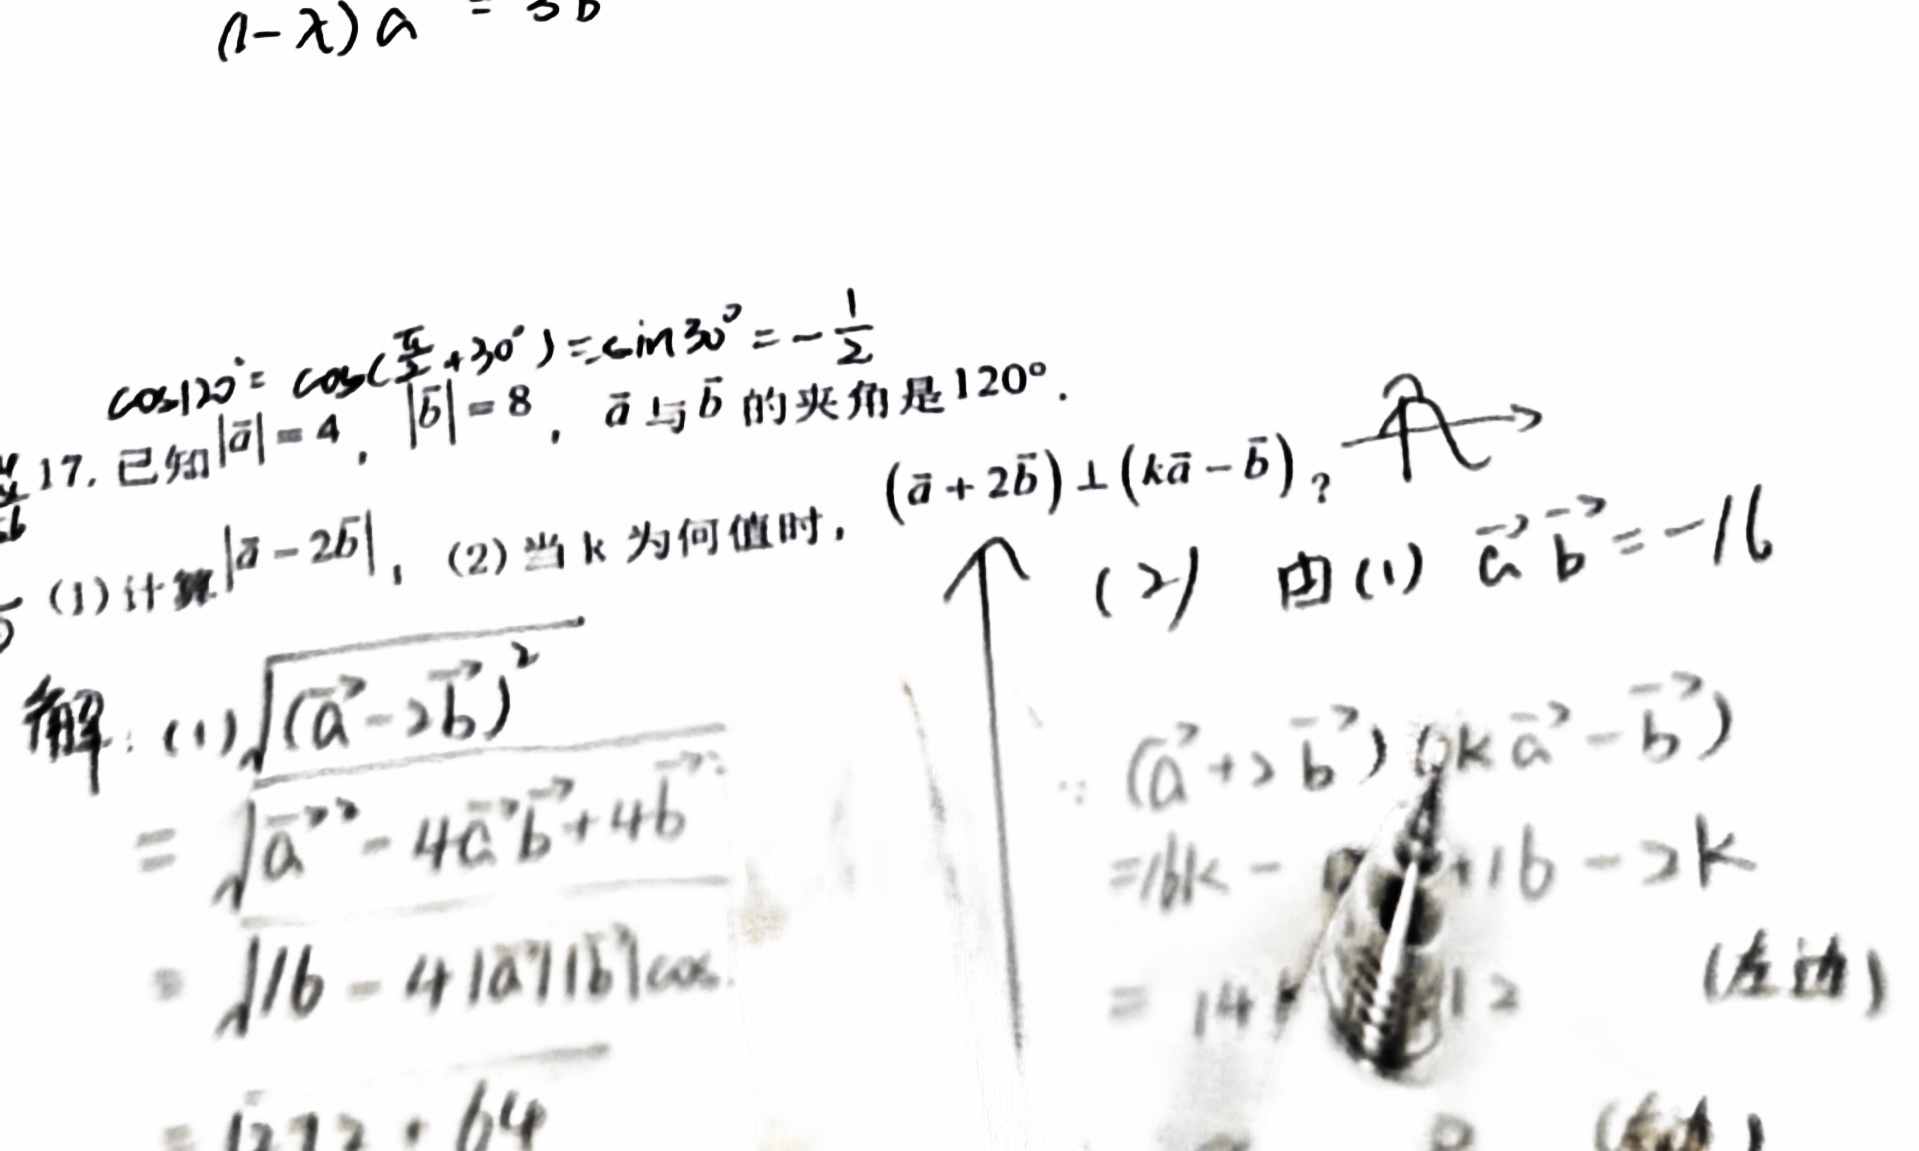 (1-λ)a = 3b
cos120°= cos(π/2+30°)=sin30°=-1/2
17. 已知|a⃗|=4, |b⃗|=8, a⃗与b⃗的夹角是120°.
(1)计算|a⃗-2b⃗|, (2)当k为何值时, (a⃗+2b⃗)⊥(ka⃗-b⃗)?
解:(1)√(a⃗-2b⃗)²
=√a⃗²-4a⃗b⃗+4b⃗
=√16-4|a⃗||b⃗|cos
64
(2) 由(1) a⃗b⃗=-16
∵(a⃗+2b⃗)(ka⃗-b⃗)
=16k- +16-2k
= 14 12 (左边)